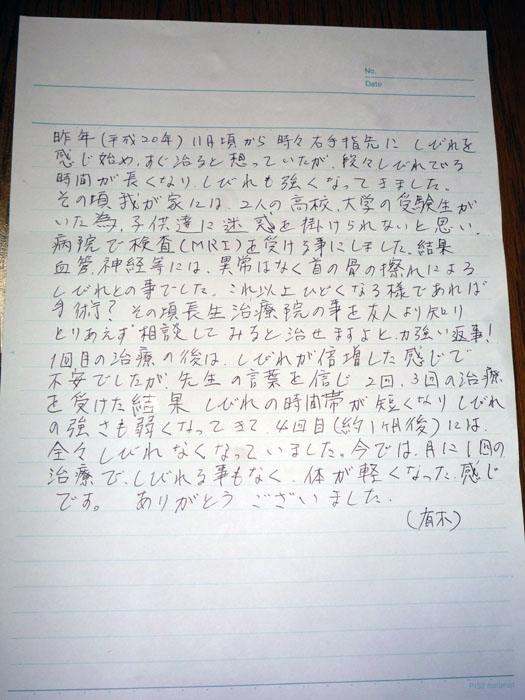 No.
Date
昨年(平成20年)11月頃から時々右手指先にしびれを
感じ始め、すぐ治ると想っていたが、段々しびれでる
時間が長くなり、しびれも強くなってきました。
その頃我が家には、2人の高校、大学の受験生が
いた為、子供達に迷惑を掛けられないと思い、
病院で検査(MRI)を受ける事にしました。結果
血管、神経等には、異常はなく首の骨の擦れによる
しびれとの事でした。これ以上ひどくなる様であれば
手術? その頃長生治療院の事を友人より知り
とりあえず相談してみると治せますよと、力強い返事!
1回目の治療の後は、しびれが倍増した感じで
不安でしたが、先生の言葉を信じ 2回、3回の治療
を受けた結果 しびれの時間帯が短くなりしびれ
の強さも弱くなってきて、4回目(約1ヶ月後)には、
全々しびれなくなっていました。今では、月に1回の
治療で、しびれる事もなく、体が軽くなった、感じ
です。 ありがとう ございました.
(有木)